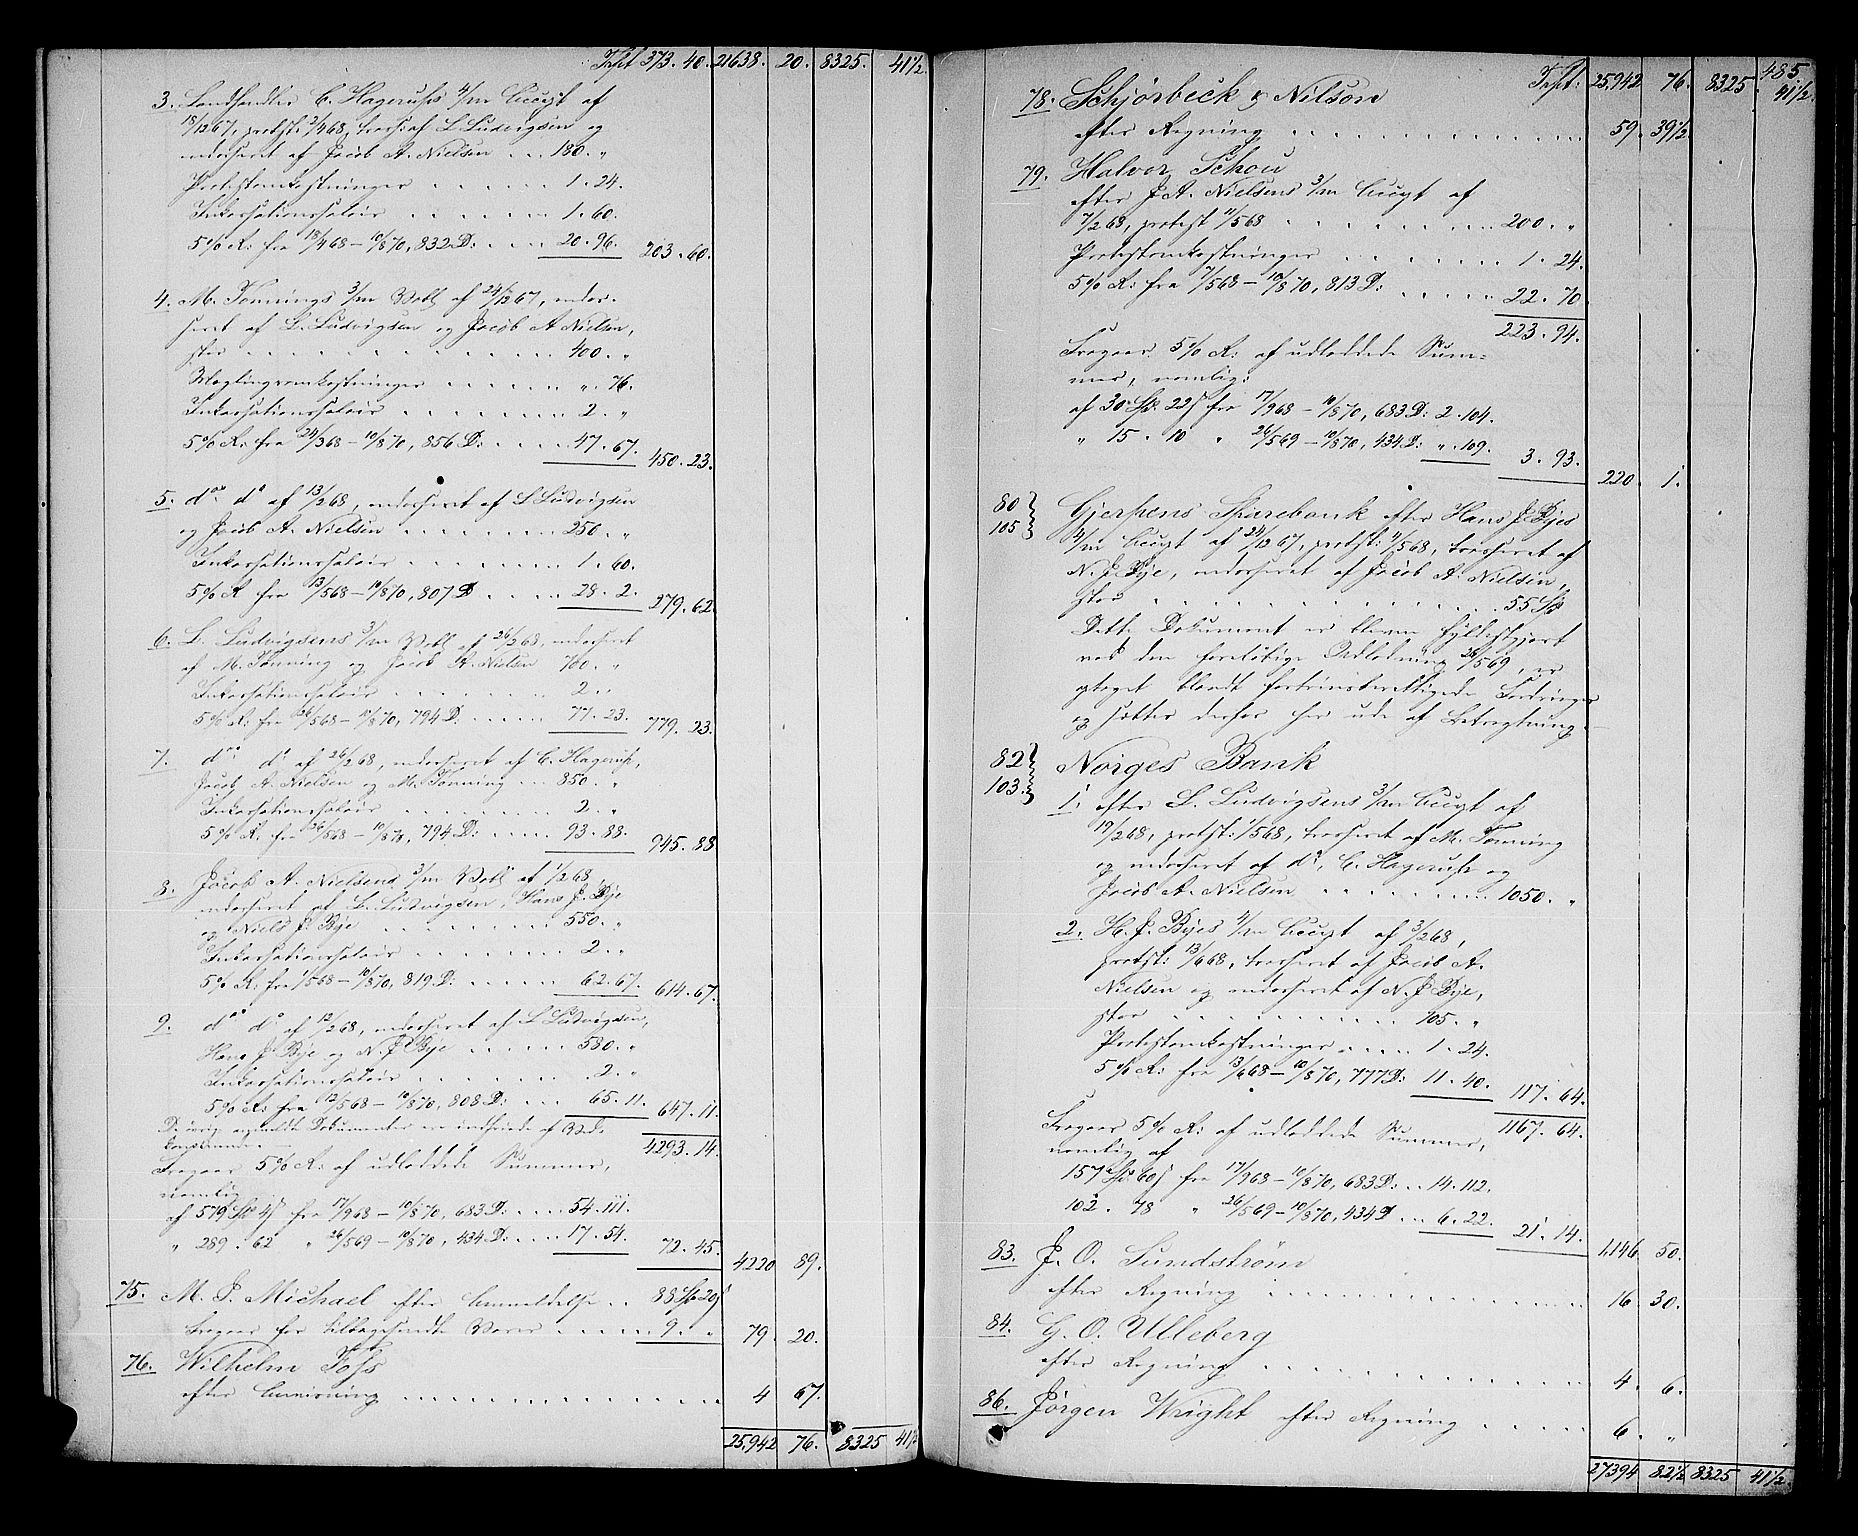 Trspt 373. 40. 21638. 20. 8325. 41½.
3. Landhandler C. Hagerups 4/m Accept af
18/12 67, protst: 2/4 68, trass: af L. Ludvigsen og
endosseret af Jacob A. Nielsen ... 180. „
Protestomkostninger . . . . . 1. 24.
Inkassationssalair . . . . . 1. 60.
5% R: fra 18/4 68 – 10/8 70, 832 D: . . . 20. 96. 203. 60.
4. M. Tønnings 3/m Vxl af 24/12 67, endos-
seret af L. Ludvigsen og Jacob A. Nielsen,
stor . . . . . . . . . . 400. „
Mæglingsomkostninger . . . . . „. 76.
Inkassationssalair . . . . . 2. „
5% R: fra 24/3 68 – 10/8 70, 856 D: . . . 47. 67. 450. 23.
5. do do af 13/2 68, endosseret af L. Ludvigsen
og Jacob A. Nielsen . . . . . 250. „
Inkassationssalair . . . . . 1. 60.
5% R fra 13/5 68 – 10/8 70, 807 D . . . 28. 2. 279. 62.
6. L. Ludvigsens 3/m Vxl af 26/2 68, endosseret
af M. Tønning og Jacob A. Nielsen 700. „
Inkassationssalair . . . . . 2. „
5% R: fra 26/5 68 – 10/8 70, 794 D: . . . 77. 23. 779. 23.
7. do do af 26/2 68, endosseret af C. Hagerup,
Jacob A. Nielsen og M. Tønning ... 850. „
Inkassationssalair . . . . . 2. „
5% R: fra 26/5 68 – 10/8 70, 794 D: . . . 93. 88. 945. 88
8. Jacob A. Nielsens 3/m Vxl af 1/2 68,
endosseret af L. Ludvigsen, Hans J. Bye
og Niels J. Bye . . . . . 550. „
Inkassationssalair . . . . . 2. „
5% R: fra 1/5 68 – 10/8 70, 819 D: . . . 62. 67. 614. 67.
9. do do af 12/2 68, endosseret af L. Ludvigsen,
Hans J. Bye og N. J. Bye . . . . . 580. „
Inkassationssalair . . . . . 2. „
5% R: fra 12/5 68 – 10/8 70, 808 D: . . . 65. 11. 647. 11.
De øvrige anmeldte Dokumenter ere indfriede af Ved-
kommende. 4293. 14.
Fragaar 5% R: af udloddede Summer,
nemlig
af 579 Sp 4 s fra 17/9 68 – 10/8 70, 683 D: . . . 54. 111.
„ 289. 62 „ 26/5 69 – 10/8 70, 434 D: . . . 17. 54. 72. 45. 4220 89.
75. M. P. Michael efter Anmeldelse . . 88 Sp 20 s
Fragaar for tilbagesendte Varer . . . . . 9. „ 79. 20.
76. Wilhelm
efter Anvisning . . . . . . . . 4 67.
25,942 76. 8325 41½
485.
Trspt: 25,942 76. 8325. 41½.
78. Schjørbeck & Nilson
efter Regning . . . . . . . . 59. 39½
79. Halvor Schou
efter J. A. Nielsens 3/m Accept af
7/2 68, protest 11/5 68 . . . . . 200. „
Protestomkostninger . . . . . 1. 24.
5% R: fra 7/5 68 – 10/8 70, 813 D: . . . 22. 70.
223. 94.
Fragaar 5% R: af udloddede Sum=
mer, nemlig:
af 30 Sp. 22 s fra 17/9 68 – 10/8 70, 683 D: 2. 104.
„ 15. 10 „ 26/5 69 – 10/8 70, 434 D: „. 109. 3. 93.
220. 1.
80 105 Gjerpens Sparebank efter Hans J. Byes
4/m Accept af 24/12 67, protst: 4/5 68, trasseret af
N. J. Bye, endosseret af Jacob A. Nielsen,
stor . . . . . . . . . . 55 Sp
Dette Dokument er bleven fyldestgjort
ved den foreløbige Udlodning 26/5 69, er
optaget blandt fortrinsberettigede Fordringer
og sættes derfor her ude af Betragtning.
82 103. Norges Bank
1. efter L. Ludvigsens 3/m Accept af
19/2 68, protst: 1/5 68, trasseret af M. Tønning
og endosseret af do, C. Hagerup og
Jacob A. Nielsen . . . . . . . 1050. „
2. H. J. Byes 4/m Accept af 3/2 68,
protst: 13/6 68, trasseret af Jacob A.
Nielsen og endosseret af N. J. Bye,
stor . . . . . . . . . 105. „
Protestomkostninger . . . . 1. 24.
5% R: fra 13/6 68 – 10/8 70, 777 D: 11. 40. 117. 64.
1167. 64.
Fragaar 5% R: af udloddede Summer,
nemlig af
157 Sp. 60 s fra 17/9 68 – 10/8 70, 683 D: . . 14. 112.
102. 78 „ 26/5 69 – 10/8 70, 434 D . . . 6. 22. 21. 14.
1,146 50.
83. J. O. Sundstrøm
efter Regning . . . . . . . . 16. 30.
84. G. O. Ulleberg
efter Regning . . . . . . . . 4. 6.
86. Jørgen Wright efter Regning . . . . . 6. „
27394 82½ 8325 41½.